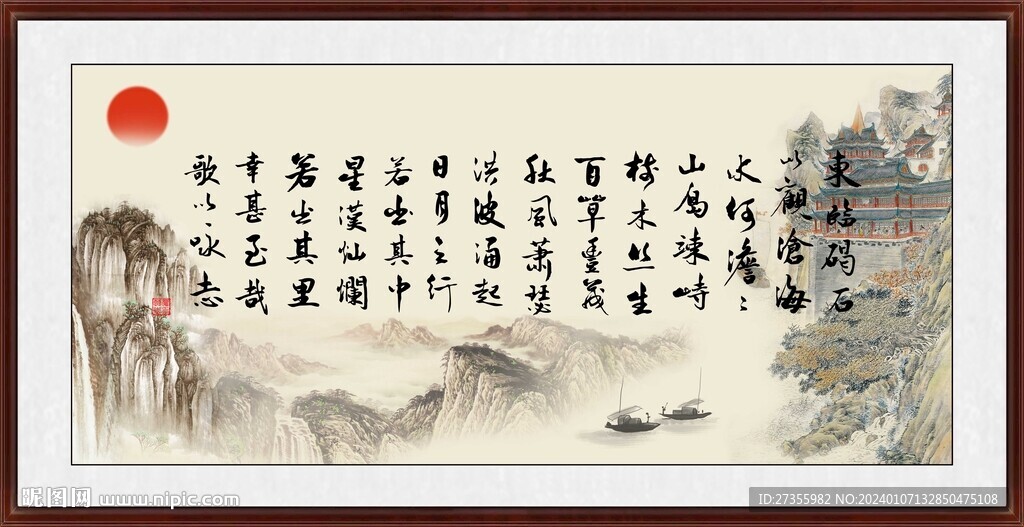 東臨碣石
以觀滄海
水何澹々
山島竦峙
树木丛生
百草豐茂
秋風蕭瑟
洪波涌起
日月之行
若出其中
星漢灿爛
若出其里
幸甚至哉
歌以咏志
昵图网 www.nipic.com
ID:27355982 NO:20240107132850475108